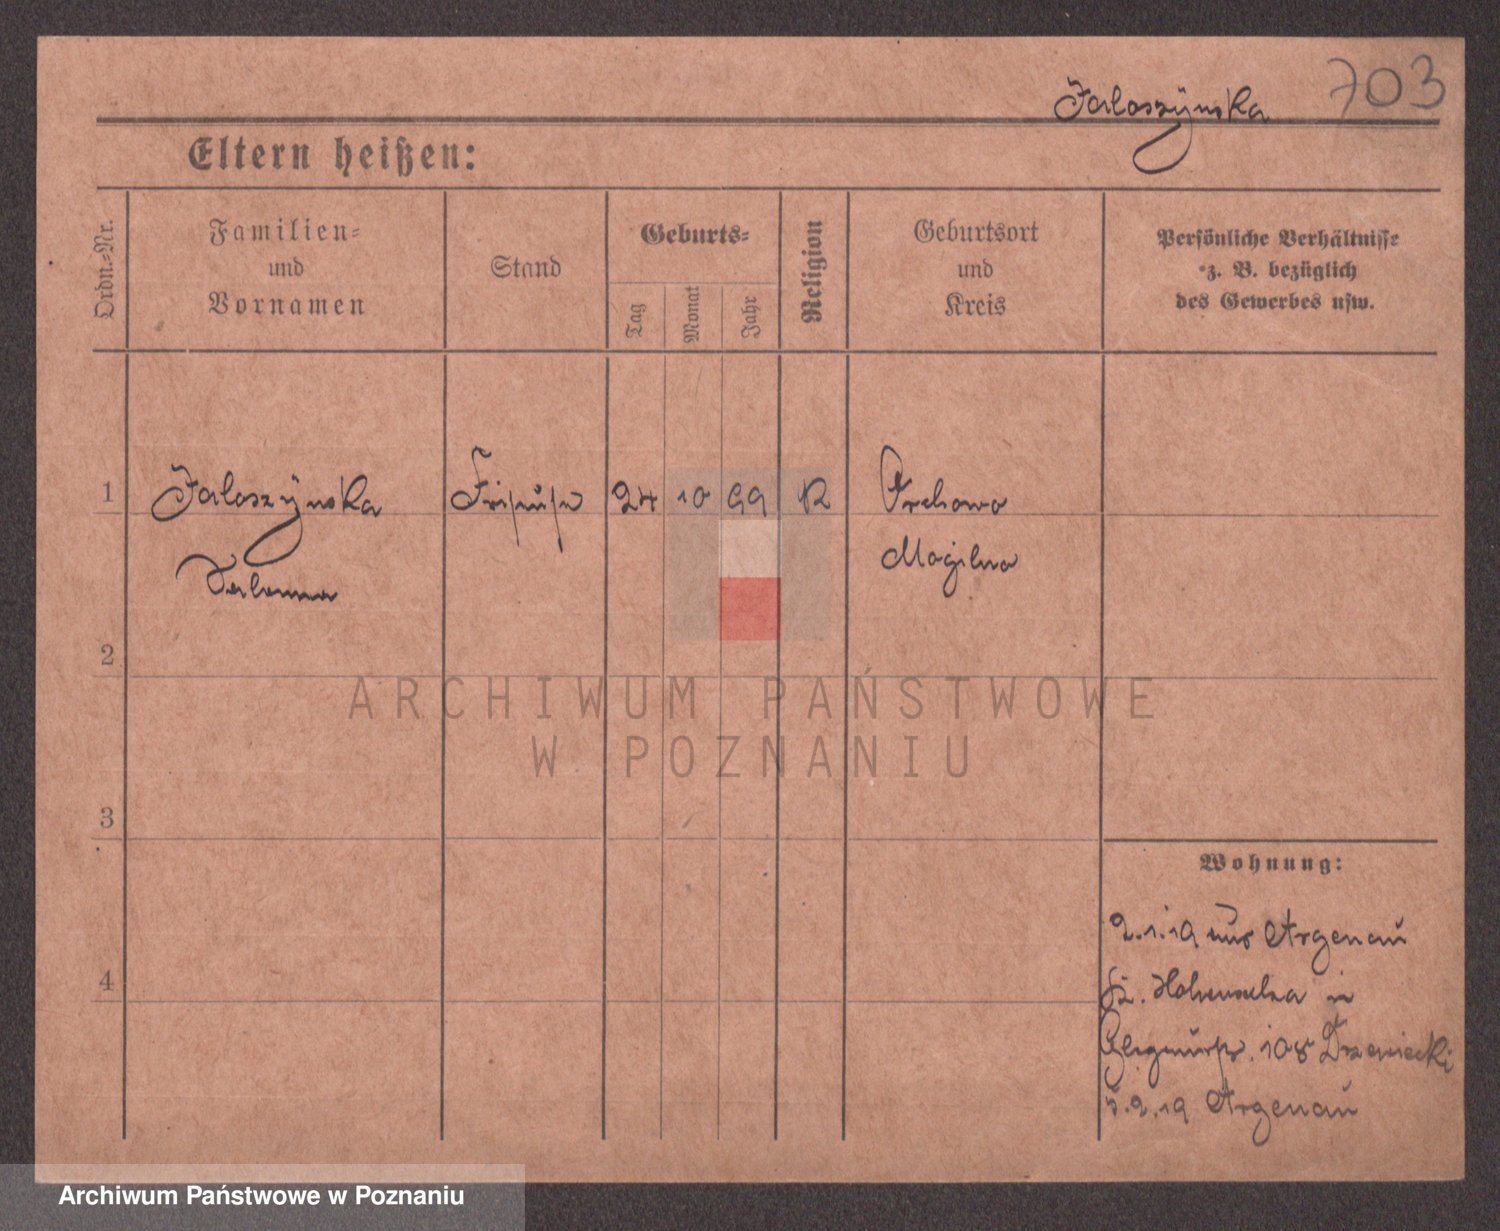 Jaloszÿnska 703
Eltern heißen:
Ordn.=Nr.
Familien=
und
Vornamen
Stand
Geburts=
Tag
Monat
Jahr
Religion
Geburtsort
und
Kreis
Persönliche Verhältnisse
z. B. bezüglich
des Gewerbes usw.
1 Jaloszÿnska 24 10 99 K
Mogilno
2
3
4
ARCHIWUM PAŃSTWOWE
W POZNANIU
Wohnung:
2.1.19 aus Argenau
Hohensalza in
108 Drzewiecki
5.2.19 Argenau
Archiwum Państwowe w Poznaniu